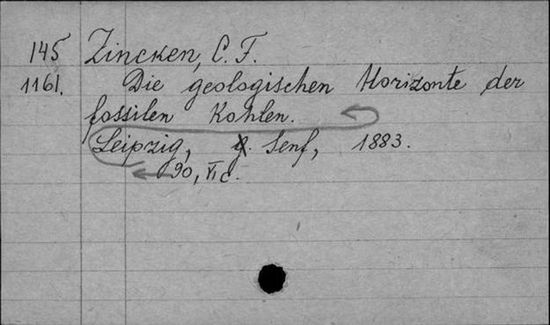 145 Zincken, C. F.
1161. Die geologischen Horizonte der
fossilen Kohlen.
Leipzig, g. Senf, 1883.
90, VI c.